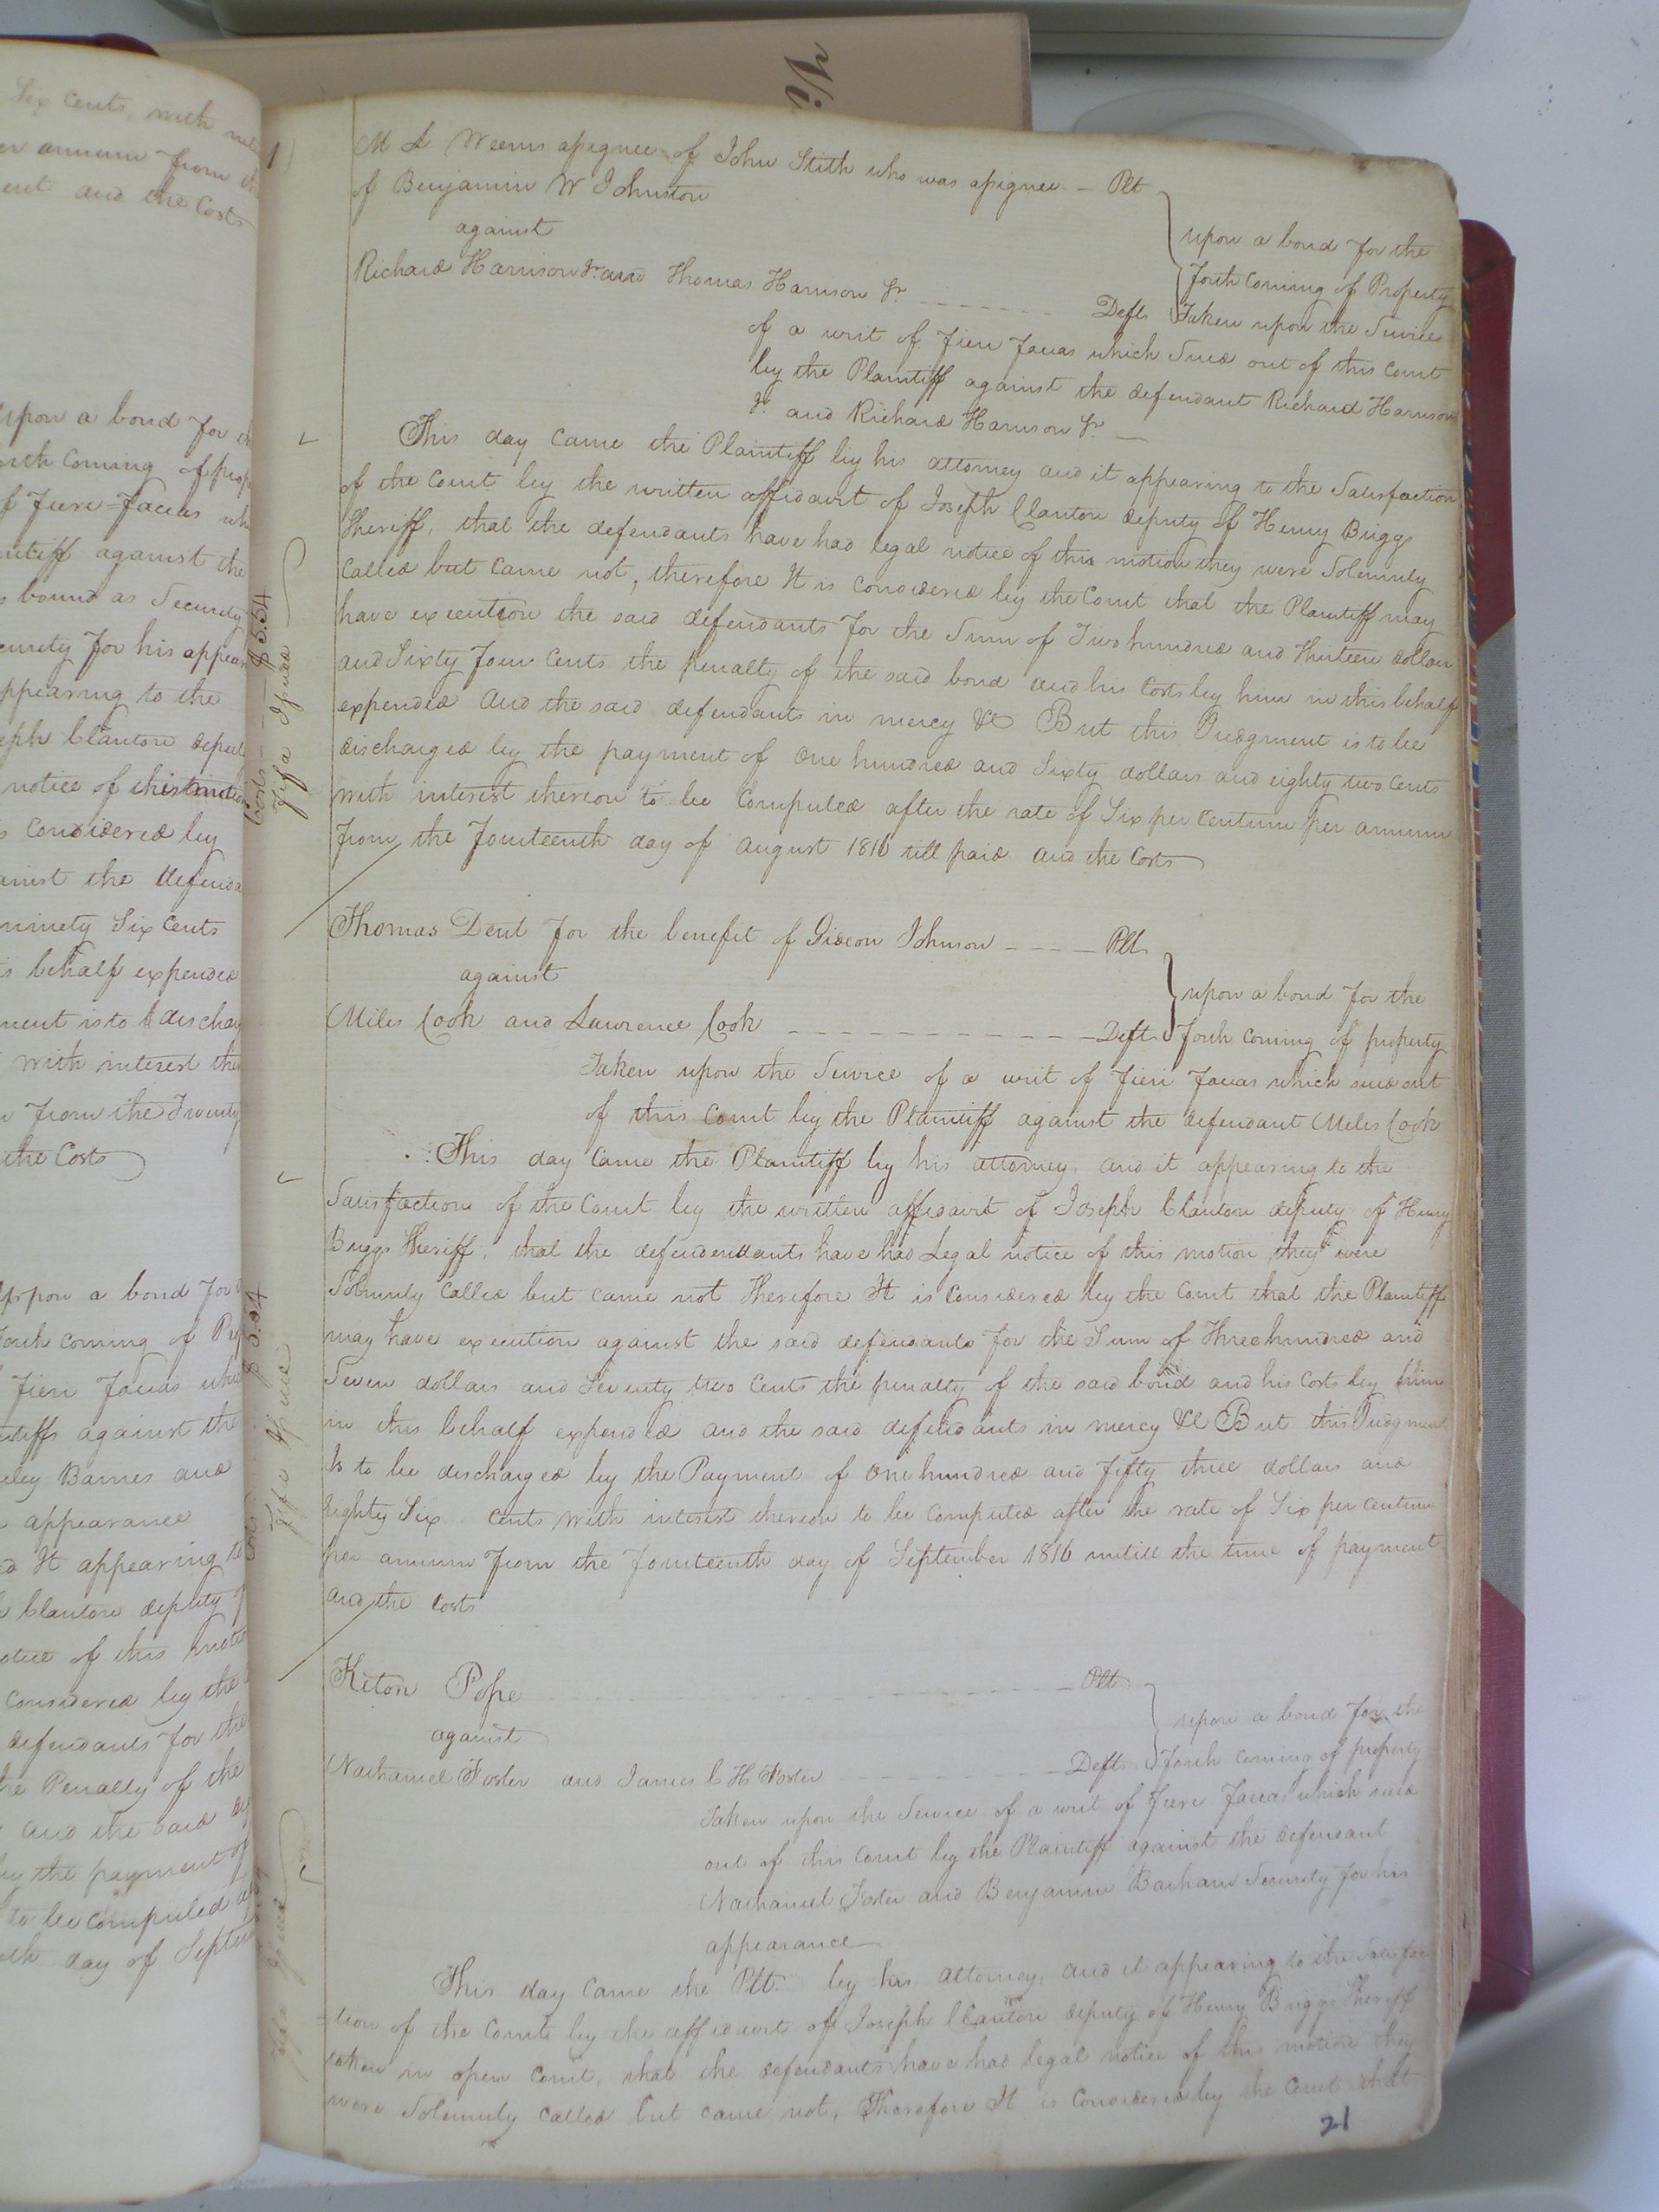 Six Cents, with
er annum from
ent and the Costs
upon a bond for
orth Coming of prop
f Fieri=Facias wh
ntiff against the
bound as Security
curity for his appear
ppearing to the
eph Clanton deput
notice of this motion
Considered by
ainst the defenda
ninety Six Cents
s behalf expended
ment is to be dischar
with interest the
from the Twenty
the Costs
upon a bond for
forth coming of Pr
Fieri Facias whi
ntiffs against the
ley Barnes and
appearance
d It appearing to
Clanton deputy of
otice of this motio
Considered by the
defendants for the
he Penalty of the
and the said
by the payment of
to be computed
th day of Septem
Vi
M L Weems assignee of John Stith who was assignee - Plt
of Benjamin W Johnston
against
Richard Harrison Jr. and Thomas Harrison Sr. Defts
upon a bond for the
forth Coming of Property
Taken upon the Service
of a writ of Fieri Facias which Sued out of this Court
by the Plaintiff against the defendant Richard Harrison
Jr. and Richard Harrison Sr.
This day Came the Plaintiff by his attorney and it appearing to the Satisfaction
of the Court by the written affidavit of Joseph Clanton deputy of Henry Briggs
Sheriff, that the defendants have had legal notice of this motion they were Solemnly
Called but Came not, therefore It is Considered by the Court that the Plaintiff may
have execution the said defendants for the Sum of Two hundred and thirteen dollars
and Sixty Four Cents the penalty of the said bond and his Costs by him in this behalf
expended And the said defendants in mercy &c But this Judgment is to be
discharged by the payment of One hundred and Sixty dollars and eighty two Cents
with interest thereon to be Computed after the rate of Six per Centum per annum
from the Fourteenth day of August 1816 till paid and the Costs
Costs - $5.54
Fifa Issued
Thomas Dent for the benefit of Gideon Johnson - - - - Plt
against
Miles Cook and Lawrence Cook - - - - - Defts
upon a bond for the
forth coming of property
Taken upon the Service of a writ of Fieri Facias which sued out
of this Court by the Plaintiff against the defendant Miles Cook
This day Came the Plaintiff by his attorney, and it appearing to the
Satisfaction of the Court by the written affidavit of Joseph Clanton deputy of Henry
Briggs Sheriff, that the defendendants have had Legal notice of this motion they were
Solemnly Called but came not Therefore It is Considered by the Court that the Plaintiff
may have execution against the said defendants for the Sum of Three hundred and
Seven dollars and Seventy two Cents the penalty of the said bond and his Costs by him
in this behalf expended and the said defendants in mercy &c But this Judgment
Is to be discharged by the Payment of One hundred and fifty three dollars and
Eighty Six Cents with interest thereon to be Computed after the rate of Six per Centum
per annum from the Fourteenth day of September 1816 untill the time of payment
and the Costs
Fifa Issued
Keton Pope - - - - Plt
against
Nathaniel Foster and James C H Foster - - - - Defts
upon a bond for the
Forth coming of property
Taken upon the Service of a writ of Fieri Facias which sued
out of this Court by the Plaintiff against the defendant
Nathaniel Foster and Benjamin Barham Security for his
appearance
This day Came the Plt. by his attorney, and it appearing to the Satisfac
=tion of the Court by the affidavit of Joseph Clanton deputy of Henry Briggs Sheriff
taken in open Court, that the defendants have had legal notice of this motion they
were Solemnly Called but came not, Therefore It is Considered by the Court that
Fifa Issued
21